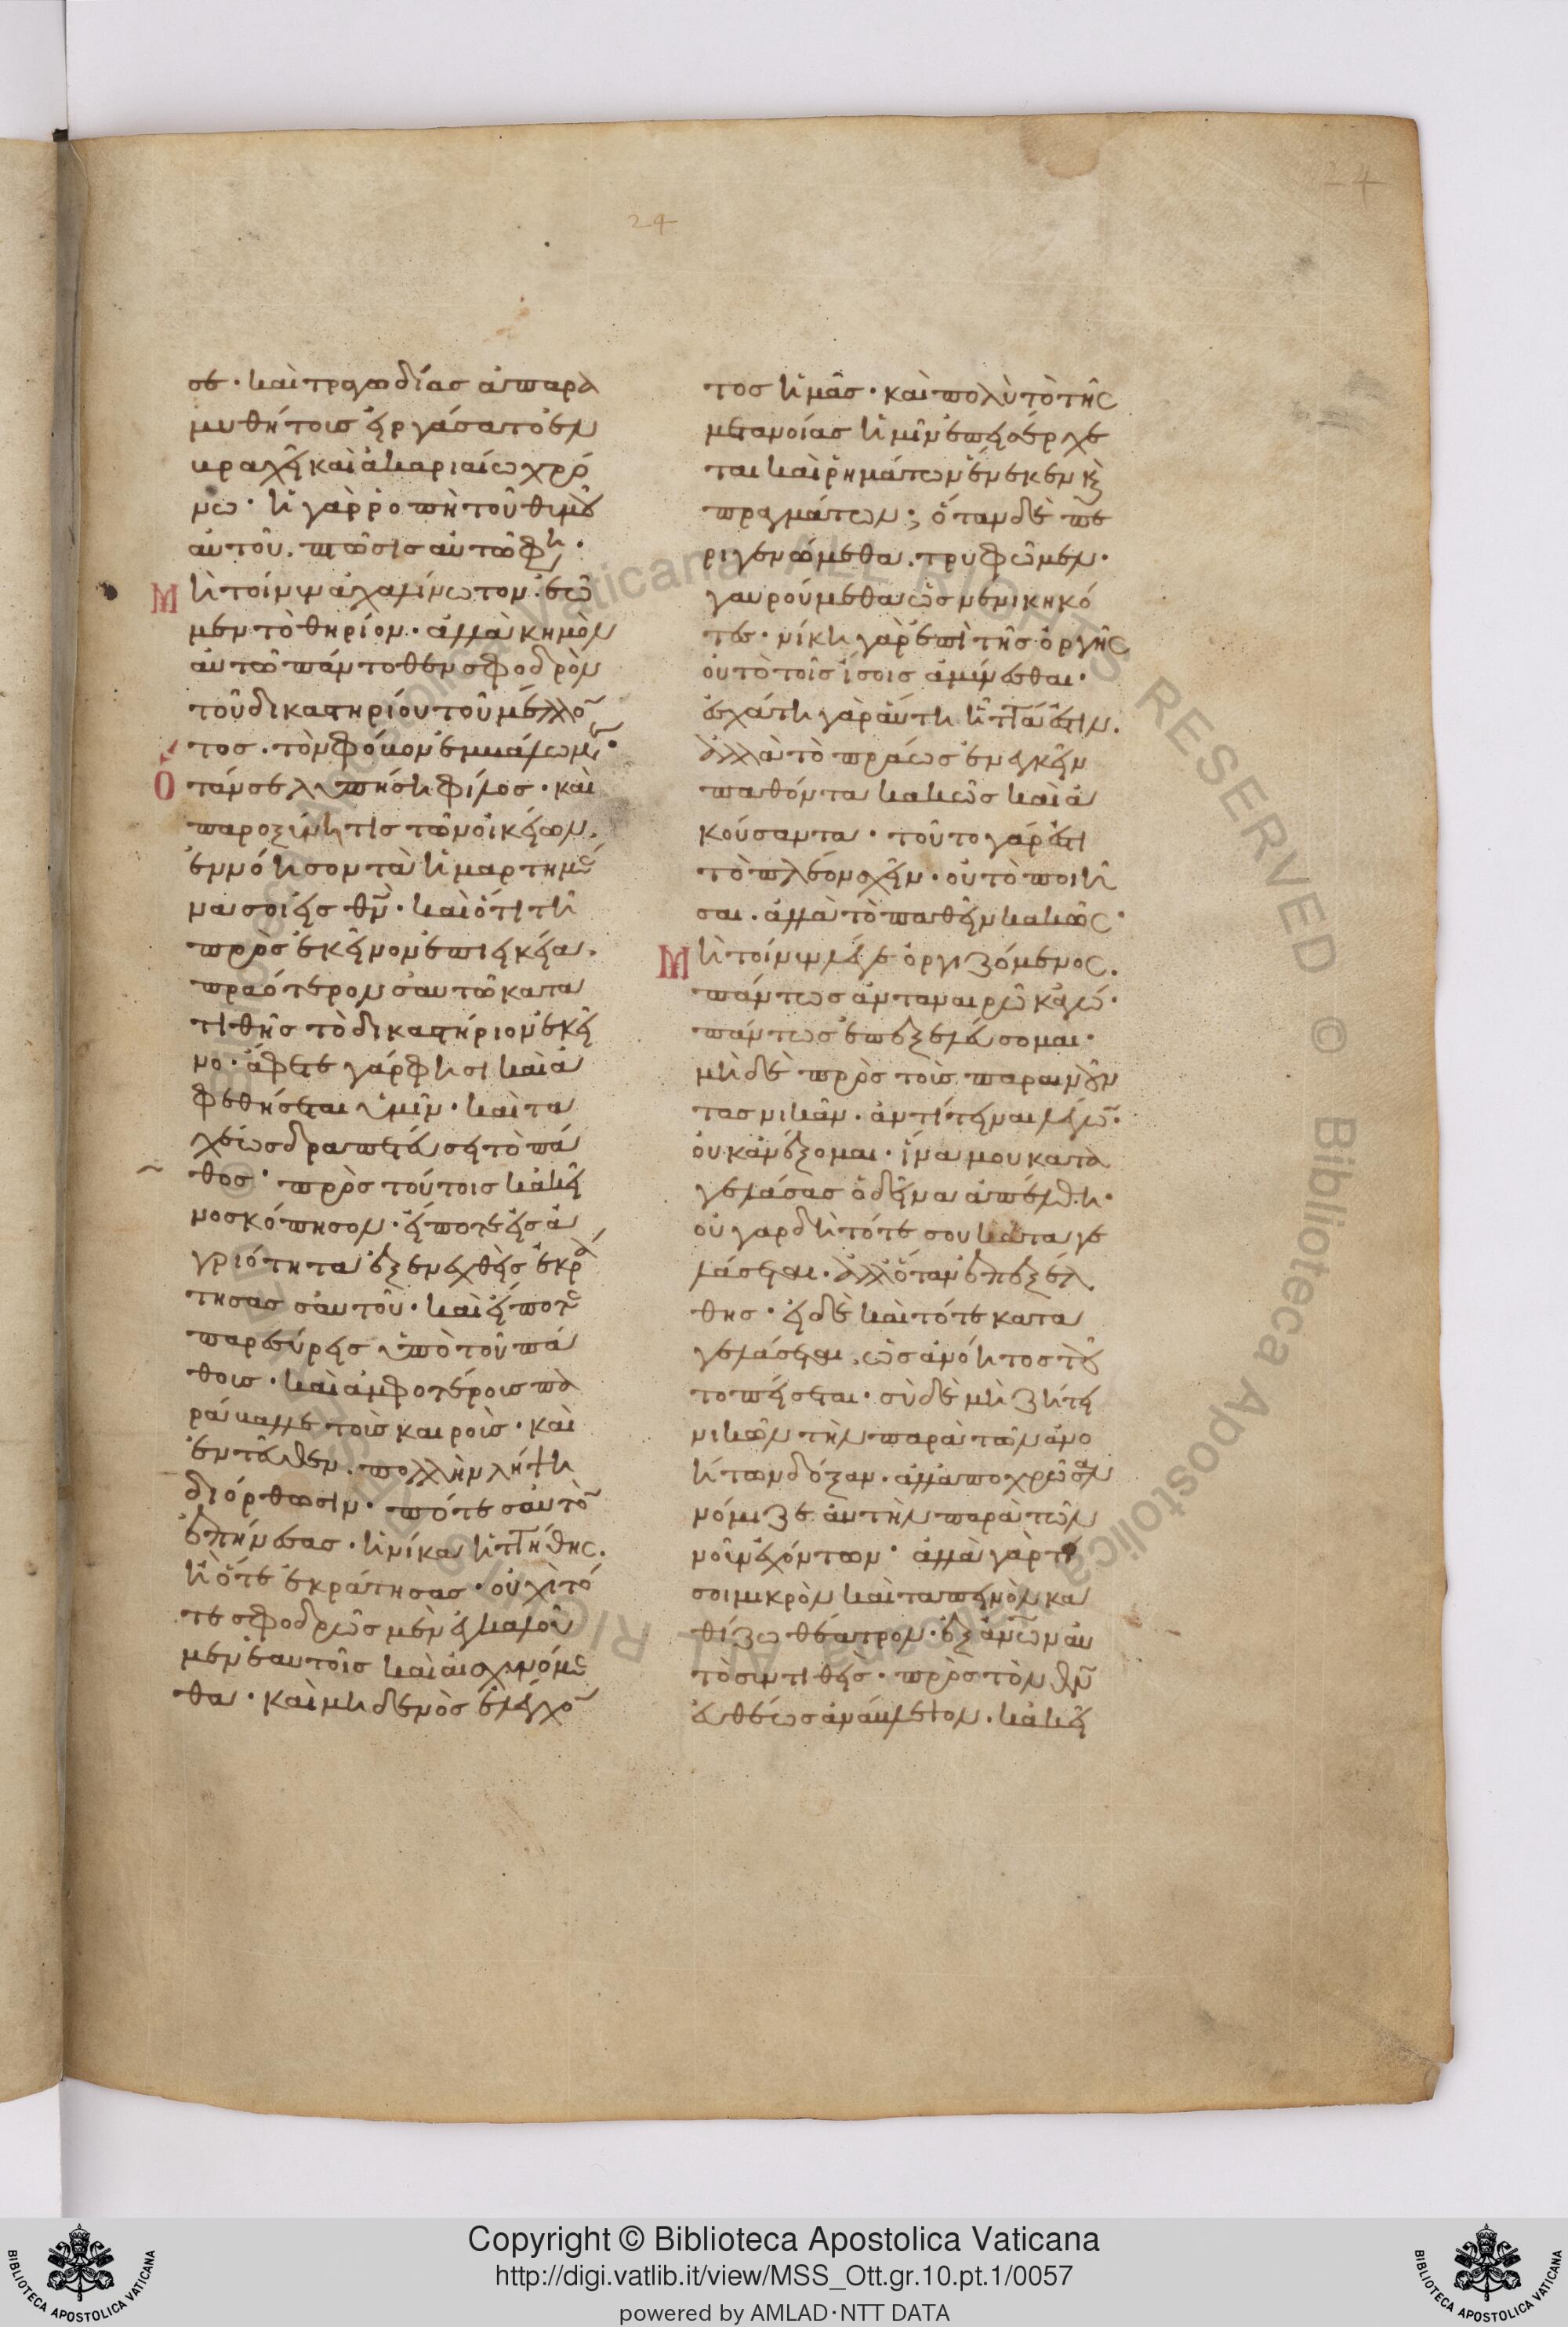 24
24
σε · καὶ τραγωδίας ἀπαρα
μυθήτοις εἰργάσατο ἐν
βραχεῖ καὶ ἀκαριαίω χρό
νω · ἡ γὰρ ῥοπὴ τοῦ θυμοῦ
αὐτοῦ, πτῶσις αὐτῶ φη ·
Μὴ τοίνυν ἀχαλίνωτον ἐῶ
μεν τὸ θηρίον · ἀλλὰ κημὸν
αὐτῶ πάντοθεν σφοδρὸν
τοῦ δικαστηρίου τοῦ μέλλο
τος · τὸν φόβον ἐμβάλωμεν ·
Ὅταν σε λυπήση φίλος · καὶ
παροξύνη τὶς τῶν οἰκείων,
ἐννόησον τὰ ἡμαρτημέ
να σοι εἰς θν · καὶ ὅτι τῆ
πρὸς ἐκεῖνον ἐπιεικεία,
πραότερον σαυτῶ κατα
τιθῆς τὸ δικαστήριον ἐκεῖ
νο · ἄφετε γάρ φησι καὶ ἀ
φεθήσεται ὑμῖν · καὶ τα
χέως δραπετεύσει τὸ πά
θος · πρὸς τούτοις κἀκεῖ
νο σκόπησον · εἴποτε εἰς ἀ
γριότητα ἐξενεχθεὶς ἐκρά
τησας σαυτοῦ · καὶ εἴποτε
παρεσύρης ὑπὸ τοῦ πά
θους · καὶ ἀμφοτέροις πα
ράβαλλε τοῖς καιροῖς · καὶ
ἐντεῦθεν πολλὴν λήψη
διόρθωσιν · πότε σαυτὸ
ἐπήνεσας · ἡνίκα ἡττήθης,
ἢ ὅτε ἐκράτησας · οὐχὶ τό
τε σφοδρῶς μὲν ἐγκαλοῦ
μεν ἑαυτοῖς καὶ αἰσχυνόμε
θα · καὶ μηδενὸς ἐλέγχο
τος ἡμᾶς · καὶ πολὺ τὸ τῆς
μετανοίας ἡμῖν ἐπεισέρχε
ται καὶ ῥημάτων ἕνεκεν κ
πραγμάτων · ὅταν δὲ πε
ριγενώμεθα, τρυφῶμεν ·
γαυρούμεθα ὡς νενικηκό
τες · νίκη γὰρ ἐπὶ τῆς ὀργῆς
οὐ τὸ τοῖς ἴσοις ἀμύνεσθαι ·
ἐσχάτη γὰρ αὕτη ἧττά ἐστιν.
ἀλλὰ τὸ πράως ἐνεγκεῖν
παθόντα κακῶς καὶ ἀ
κούσαντα · τοῦτο γάρ ἐστι
τὸ πλέον ἔχειν · οὐ τὸ ποιῆ
σαι · ἀλλὰ τὸ παθεῖν κακῶς ·
Μὴ τοίνυν λέγε ὀργιζόμενος,
πάντως ἀνταναιρῶ κἀγώ ·
πάντως ἐπεξελεύσομαι ·
μὴ δὲ πρὸς τοὺς παραινοῦν
τας νικᾶν · ἀντίτεινε λέγω
οὐκ ἀνέξομαι · ἵνα μου κατα
γελάσας ὁ δεῖνα ἀπέλθη ·
οὐ γαρ δὴ τότε σου καταγε
λάσεται · ἀλλ ὅταν ἐπεξέλ
θης · εἰ δὲ καὶ τότε κατα
γελάσεται, ὡς ἀνόητος τοῦ
το ποιήσεται · σὺ δὲ μὴ ζήτει
νικῶν τὴν παρὰ τῶν ἀνο
ήτων δόξαν · ἀλλα ἀποχρῶσαν
νόμιζε αὐτὴν παρὰ τῶν
νοῦν ἐχόντων · ἀλλὰ γὰρ τί
σοι μικρὸν καὶ ταπεινὸν κα
θίζω θέατρον · ἐξ ἀνων αὐ
τὸ συντιθείς · πρὸς τὸν θν
εὐθέως ἀνάβλεψον, κἀκεῖ
Copyright © Biblioteca Apostolica Vaticana
http://digi.vatlib.it/view/MSS_Ott.gr.10.pt.1/0057
powered by AMLAD·NTT DATA
BIBLIOTECA APOSTOLICA VATICANA
BIBLIOTECA APOSTOLICA VATICANA